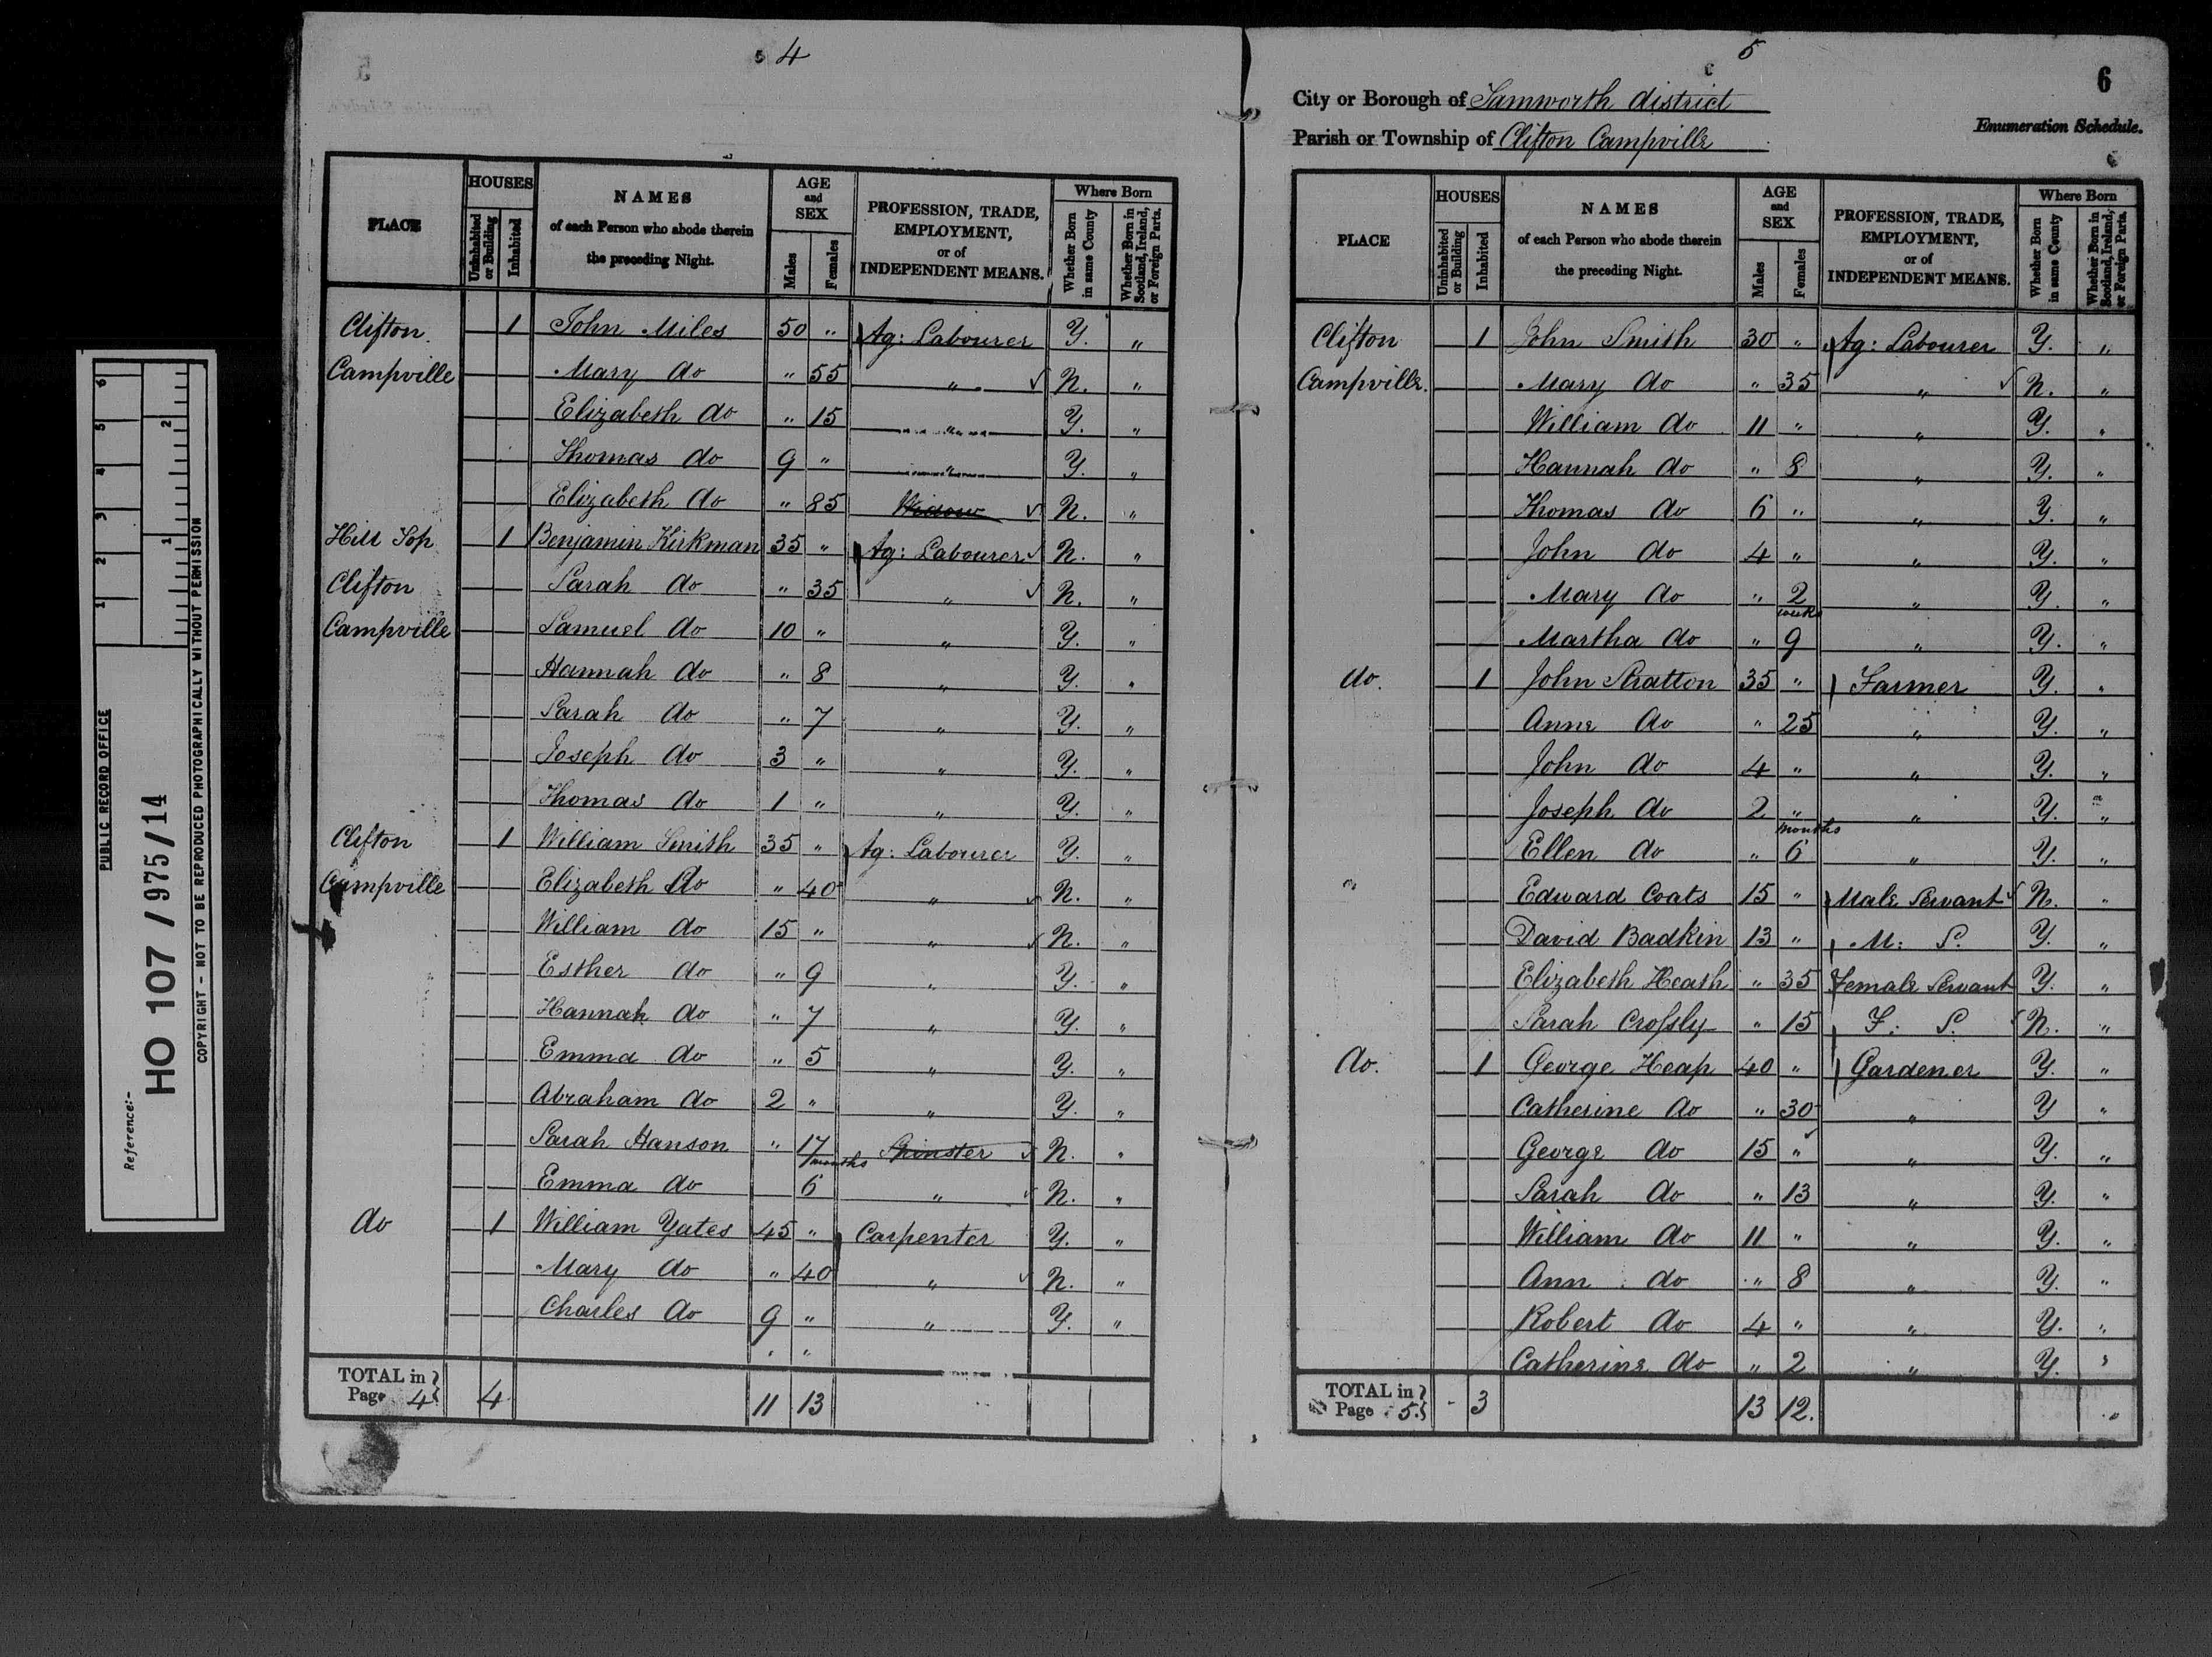 PUBLIC RECORD OFFICE
Reference:-
HO 107 / 975 / 14
COPYRIGHT - NOT TO BE REPRODUCED PHOTOGRAPHICALLY WITHOUT PERMISSION
1 2 3 4 5 6
1 2
4
PLACE
HOUSES
Uninhabited or Building
Inhabited
NAMES
of each Person who abode therein
the preceding Night.
AGE
and
SEX
Males
Females
PROFESSION, TRADE,
EMPLOYMENT,
or of
INDEPENDENT MEANS.
Where Born
Whether Born in same County
Whether Born in Scotland, Ireland, or Foreign Parts.
Clifton. 1 John Miles 50 " Ag: Labourer Y. "
Campville Mary do " 55 " N. "
Elizabeth do " 15 " Y. "
Thomas do 9 " " Y. "
Elizabeth do " 85 Widow N. "
Hill Top 1 Benjamin Kirkman 35 " Ag: Labourer N. "
Clifton Sarah do " 35 " N. "
Campville Samuel do 10 " " Y. "
Hannah do " 8 " Y. "
Sarah do " 7 " Y. "
Joseph do 3 " " Y. "
Thomas do 1 " " Y. "
Clifton 1 William Smith 35 " Ag: Labourer Y. "
Campville Elizabeth Do " 40 " N. "
William do 15 " " N. "
Esther do " 9 " Y. "
Hannah do " 7 " Y. "
Emma do " 5 " Y. "
Abraham do 2 " " Y. "
Sarah Hanson " 17 Spinster N. "
Emma do months 6 " N. "
do 1 William Yates 45 " Carpenter Y. "
Mary do " 40 " N. "
Charles do 9 " " Y. "
" "
TOTAL in
Page 4 4 11 13
5
6
City or Borough of Tamworth district
Parish or Township of Clifton Campville
Enumeration Schedule.
PLACE
HOUSES
Uninhabited or Building
Inhabited
NAMES
of each Person who abode therein
the preceding Night.
AGE
and
SEX
Males
Females
PROFESSION, TRADE,
EMPLOYMENT,
or of
INDEPENDENT MEANS.
Where Born
Whether Born in same County
Whether Born in Scotland, Ireland, or Foreign Parts.
Clifton 1 John Smith 30 " Ag: Labourer Y. "
Campville. Mary do " 35 " N. "
William do 11 " " Y. "
Hannah do " 8 " Y. "
Thomas do 6 " " Y. "
John do 4 " " Y. "
Mary do " 2 " Y. "
Martha do " weeks 9 " Y. "
do. 1 John Stratton 35 " Farmer Y. "
Anne do " 25 " Y. "
John do 4 " " Y. "
Joseph do 2 " " Y. "
Ellen do " months 6 " Y. "
Edward Coats 15 " Male Servant N. "
David Badkin 13 " M: S. Y. "
Elizabeth Heath " 35 Female Servant Y. "
Sarah Crossly " 15 F: S. N. "
do. 1 George Heap 40 " Gardener Y. "
Catherine do " 30 " Y "
George do 15 " " Y. "
Sarah do " 13 " Y. "
William do 11 " " Y. "
Ann do " 8 " Y. "
Robert do 4 " " Y. "
Catherine do " 2 " Y. "
TOTAL in
Page 5. - 3 13 12. "